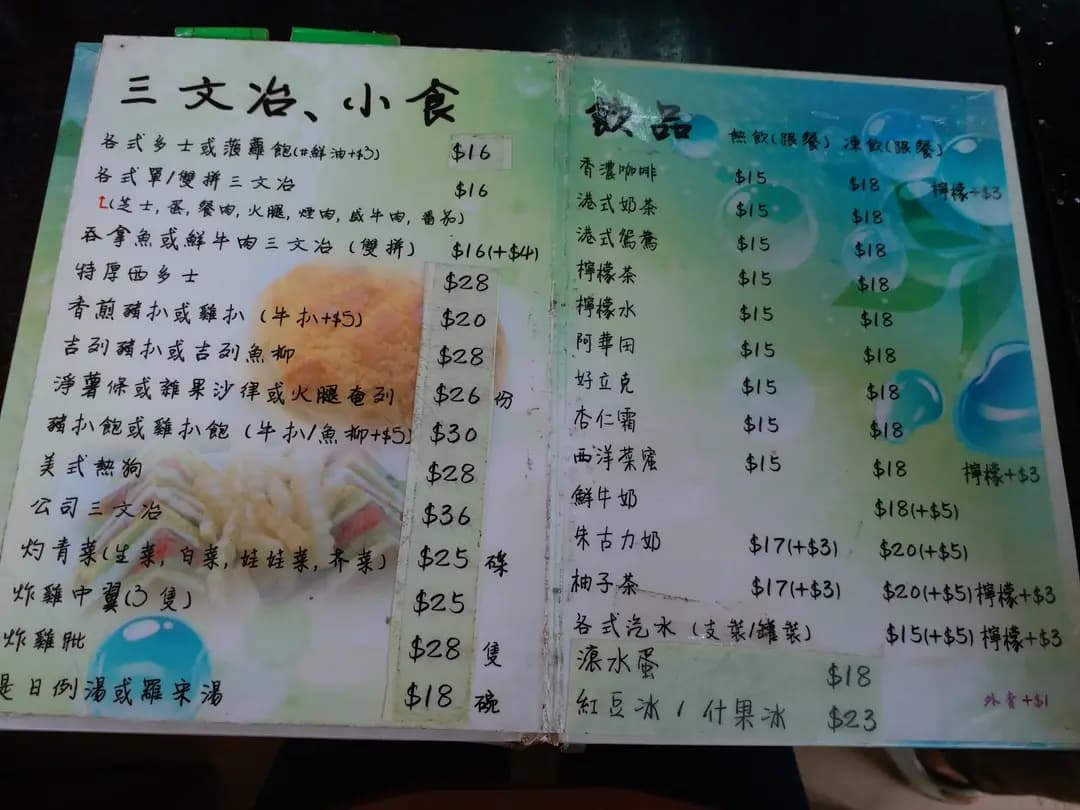 三文冶、小食
各式多士或菠蘿飽(#鮮油+$3) $16
各式單/雙拼三文冶 $16
(芝士,蛋,餐肉,火腿,煙肉,咸牛肉,番茄)
吞拿魚或鮮牛肉三文冶(雙拼) $16(+$4)
特厚西多士 $28
香煎豬扒或雞扒(牛扒+$5) $20
吉列豬扒或吉列魚柳 $28
淨薯條或雜果沙律或火腿奄列 $26 份
豬扒飽或雞扒飽(牛扒/魚柳+$5) $30
美式熱狗 $28
公司三文冶 $36
灼青菜(生菜,白菜,娃娃菜,芥菜) $25 碟
炸雞中翼(3隻) $25
炸雞肶 $28 隻
是日例湯或羅宋湯 $18 碗
飲品 熱飲(跟餐) 凍飲(跟餐)
香濃咖啡 $15 $18 檸檬+$3
港式奶茶 $15 $18
港式鴛鴦 $15 $18
檸檬茶 $15 $18
檸檬水 $15 $18
阿華田 $15 $18
好立克 $15 $18
杏仁霜 $15 $18
西洋菜蜜 $15 $18 檸檬+$3
鮮牛奶 $18(+$5)
朱古力奶 $17(+$3) $20(+$5)
柚子茶 $17(+$3) $20(+$5) 檸檬+$3
各式汽水(支裝/罐裝) $15(+$5) 檸檬+$3
滾水蛋 $18
紅豆冰/什果冰 $23
外賣+$1